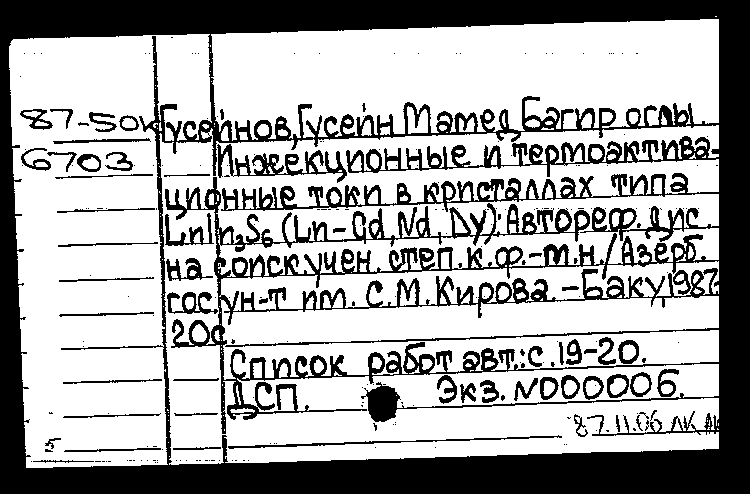 87-50к Гусейнов, Гусейн Мамед Багир оглы.
6703 Инжекционные и термоактива-
ционные токи в кристаллах типа
LnIn₃S₆ (Ln-Gd, Nd, Dy): Автореф. дис.
на соиск. учен. степ. к. ф.-м.н. / Азерб.
гос. ун-т им. С.М. Кирова. - Баку, 1987.-
20с.
Список работ авт.: с. 19-20.
ДСП. Экз. N000006.
87.11.06 ЛК
5